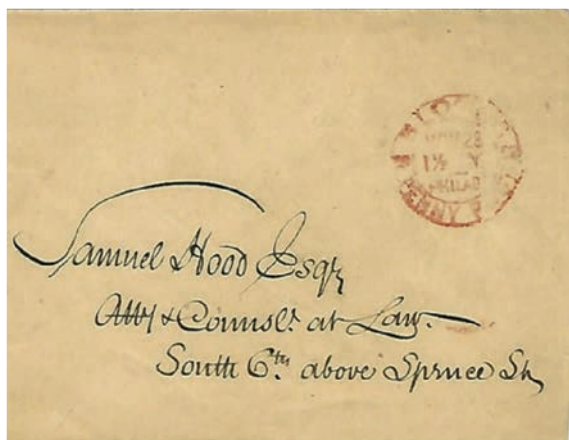 28
1½
PHILAD
PENNY
Samuel Hood Esqr
Atty & Counslr at Law.
South 6th above Spruce St